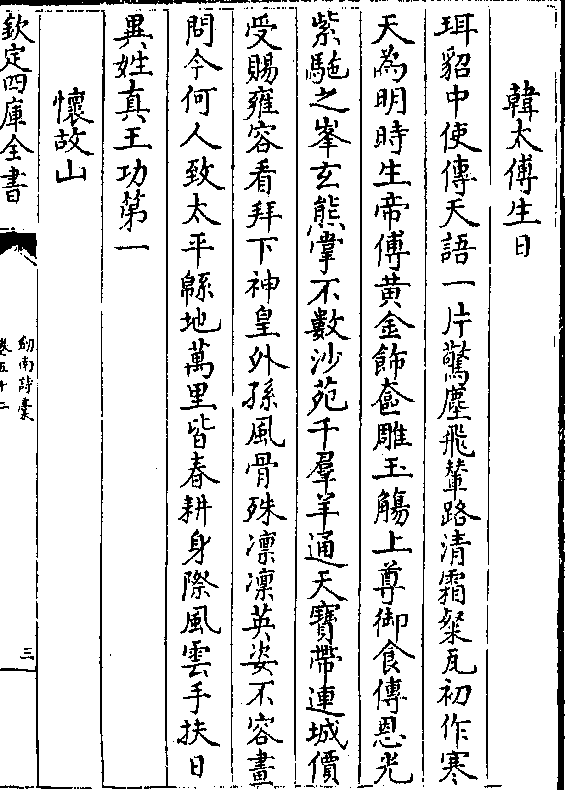 韓太傅生日
珥貂中使傳天語一片驚塵飛輦路清霜粲瓦初作寒
天為明時生帝傅黄金飾奩雕玉觴上尊御食傳恩光
紫駞之峯玄熊掌不數沙苑千羣羊通天寶帶連城價
受賜雍容看拜下神皇外孫風骨殊凛凛英姿不容畫
問今何人致太平緜地萬里皆春耕身際風雲手扶日
異姓真王功第一
懷故山
欽定四庫全書
劒南詩藁
卷五十二
三